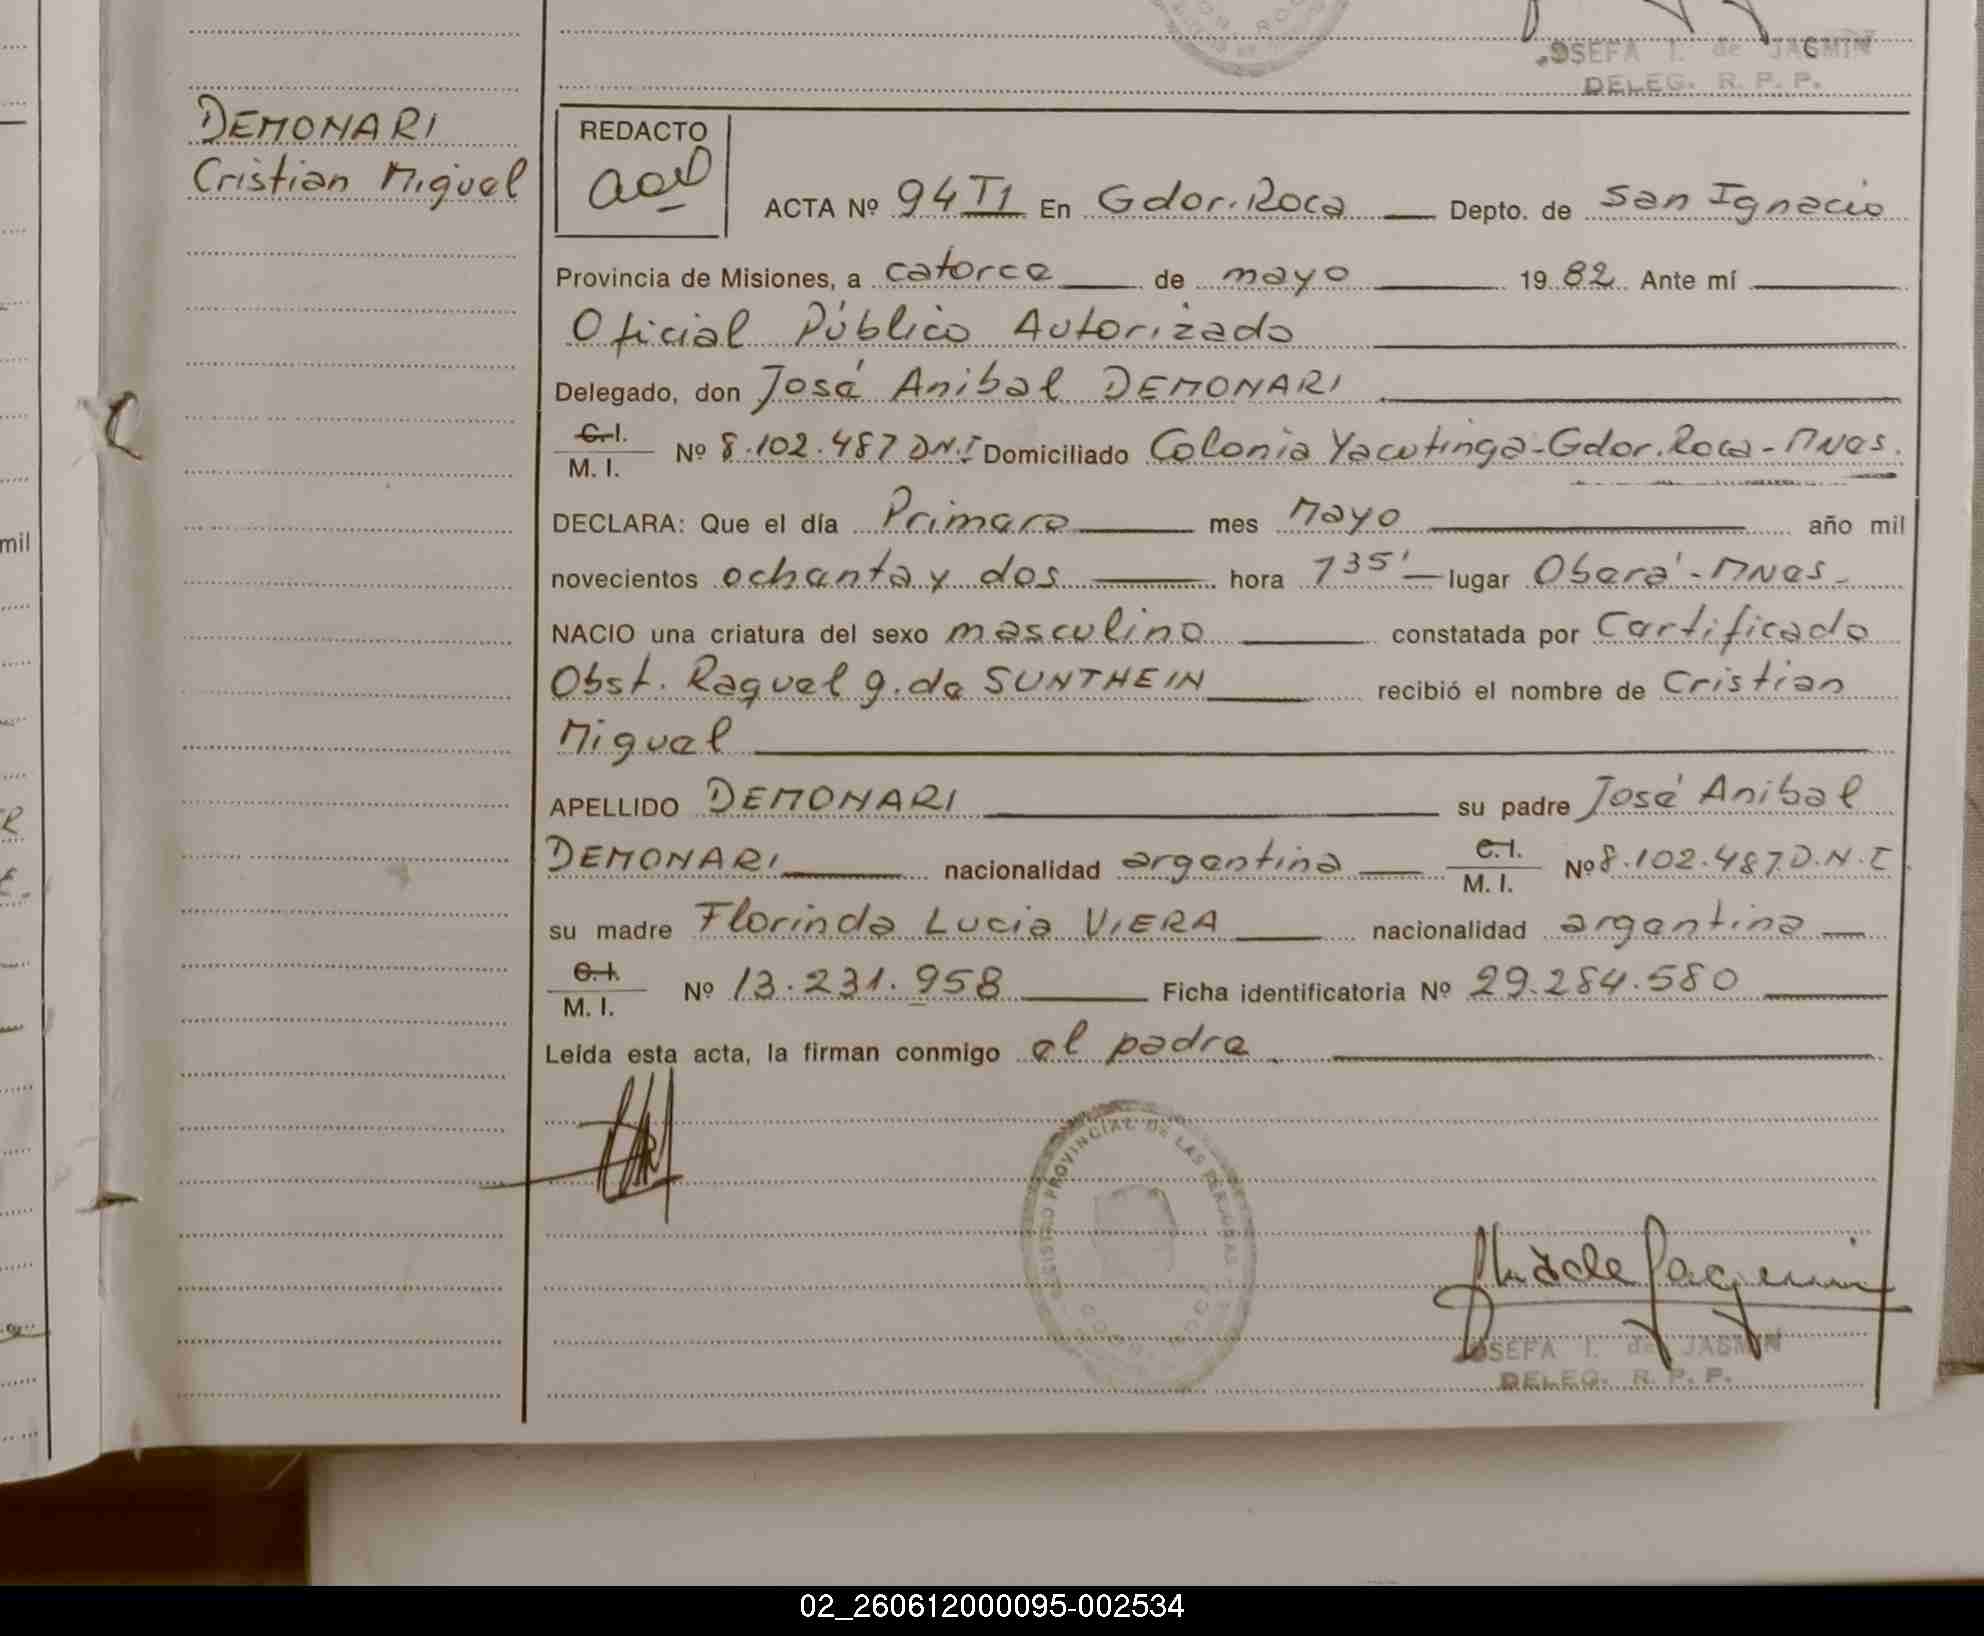 OSEFA I. de JASMIN
DELEG. R. P. P.
DEMONARI
Cristian Miguel
REDACTO
ACTA Nº 94 T1 En Gdor. Roca Depto. de San Ignacio
Provincia de Misiones, a catorce de mayo 1982 Ante mí
Oficial Público Autorizado
Delegado, don José Anibal DEMONARI
C.I.
M. I. Nº 8.102.487 D.N.I Domiciliado Colonia Yacutinga-Gdor. Roca-Mnes.
DECLARA: Que el día Primero mes Mayo año mil
novecientos ochenta y dos hora 7 35' lugar Oberá-Mnes-
NACIO una criatura del sexo masculino constatada por Certificado
Obst. Raquel g. de SUNTHEIN recibió el nombre de Cristian
Miguel
APELLIDO DEMONARI su padre José Anibal
DEMONARI nacionalidad argentina C.I.
M. I. Nº 8.102.487 D.N.I
su madre Florinda Lucia VIERA nacionalidad argentina
C.I.
M. I. Nº 13.231.958 Ficha identificatoria Nº 29.284.580
Leída esta acta, la firman conmigo el padre
REGISTRO PROVINCIAL DE LAS PERSONAS
GDOR. ROCA
OSEFA I. de JASMIN
DELEG. R. P. P.
mil
02_260612000095-002534